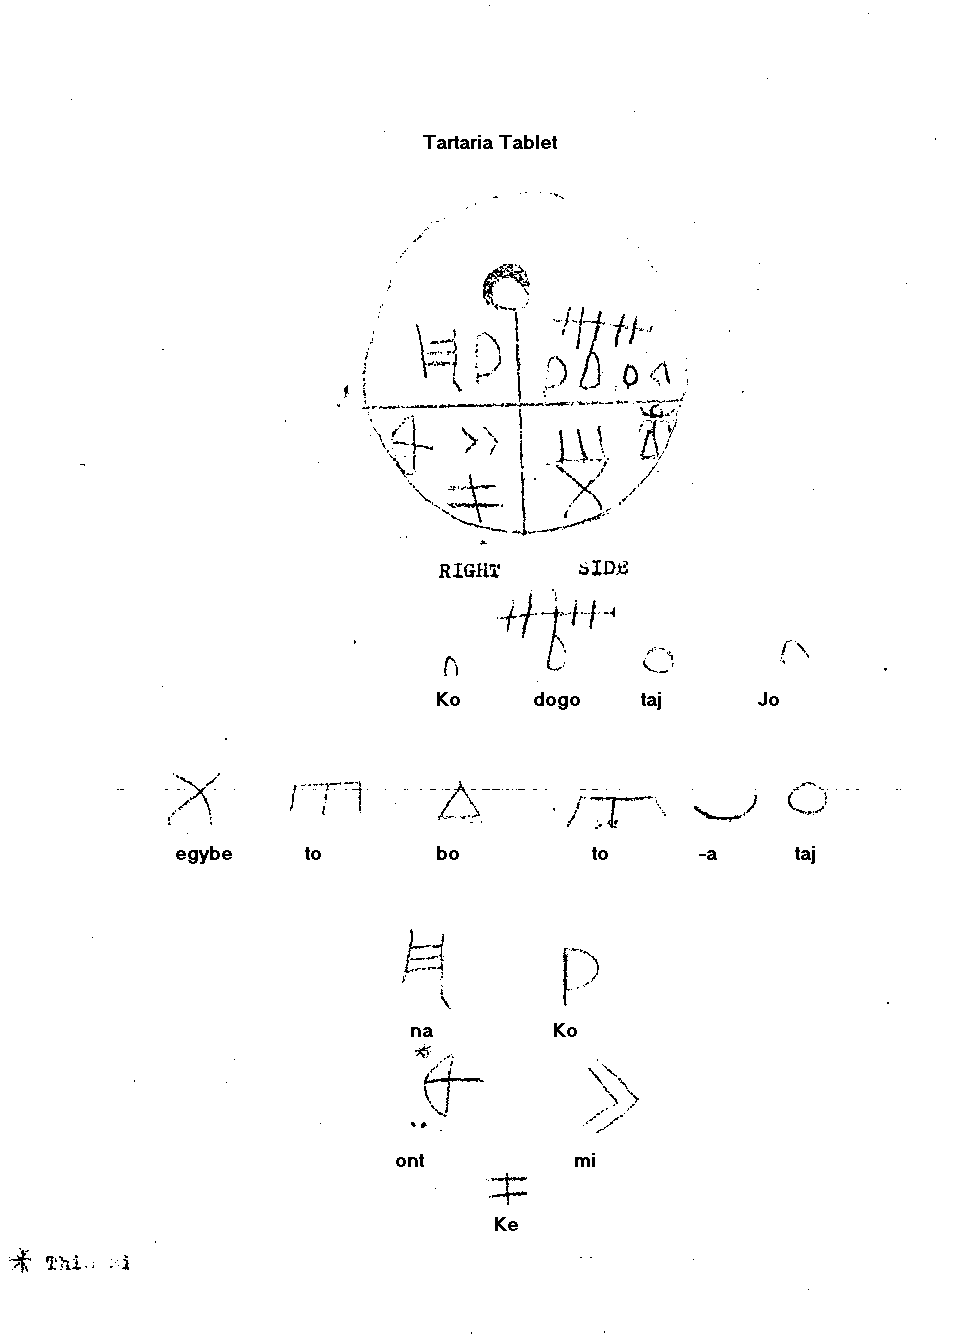 Tartaria Tablet
RIGHT SIDE
Ko dogo taj Jo
egybe to bo to -a taj
na Ko
*
ont mi
Ke
*